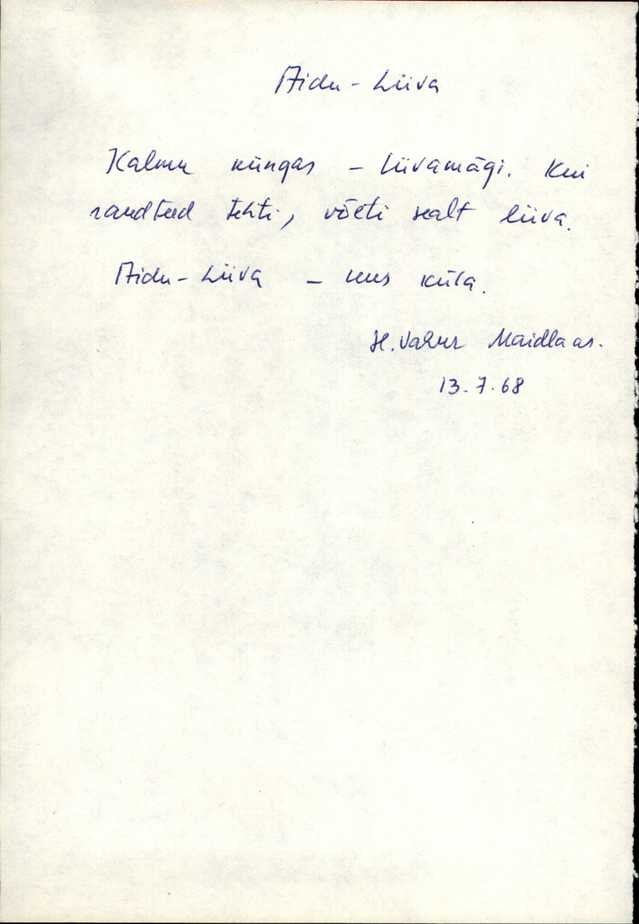 Aidu-Liiva
Kalmu küngas – Liivamägi. Kui
raudteed tehti, võeti sealt liiva.
Aidu-Liiva – uus küla.
H. Maidlaas.
13.7.68